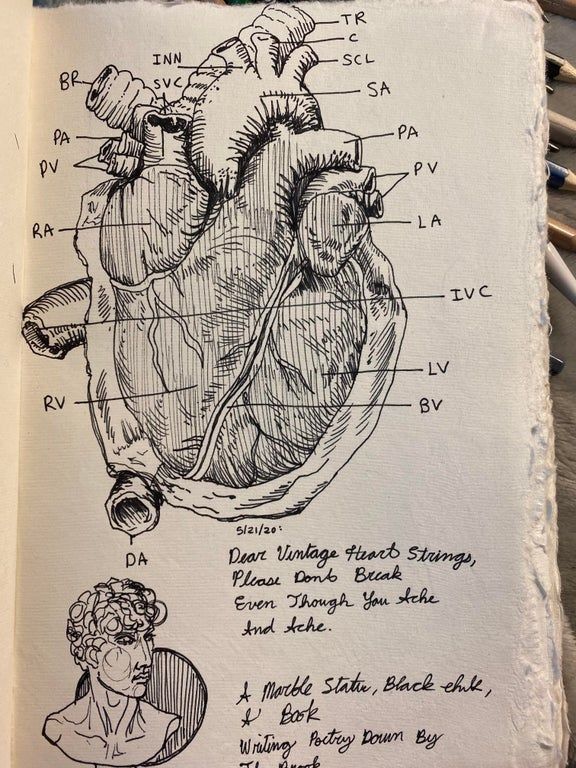 TR
C
INN
SCL
BR
SVC
SA
PA
PA
PV
PV
RA
LA
IVC
LV
RV
BV
DA
5/21/20:
Dear Vintage Heart Strings,
Please Dont Break
Even Though You Ache
And Ache.
A Marble Statue, Black
A Book
Writing Poetry Down By
The Brook